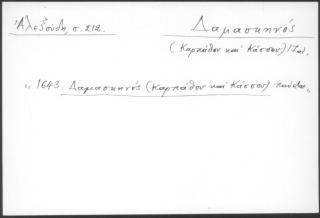 Ἀλεξούδη, σ. 212.
Δαμασκηνός
(Καρπάθου καὶ Κάσσου)
1643. Δαμασκηνός (Καρπάθου καὶ Κάσσου) παύεται.